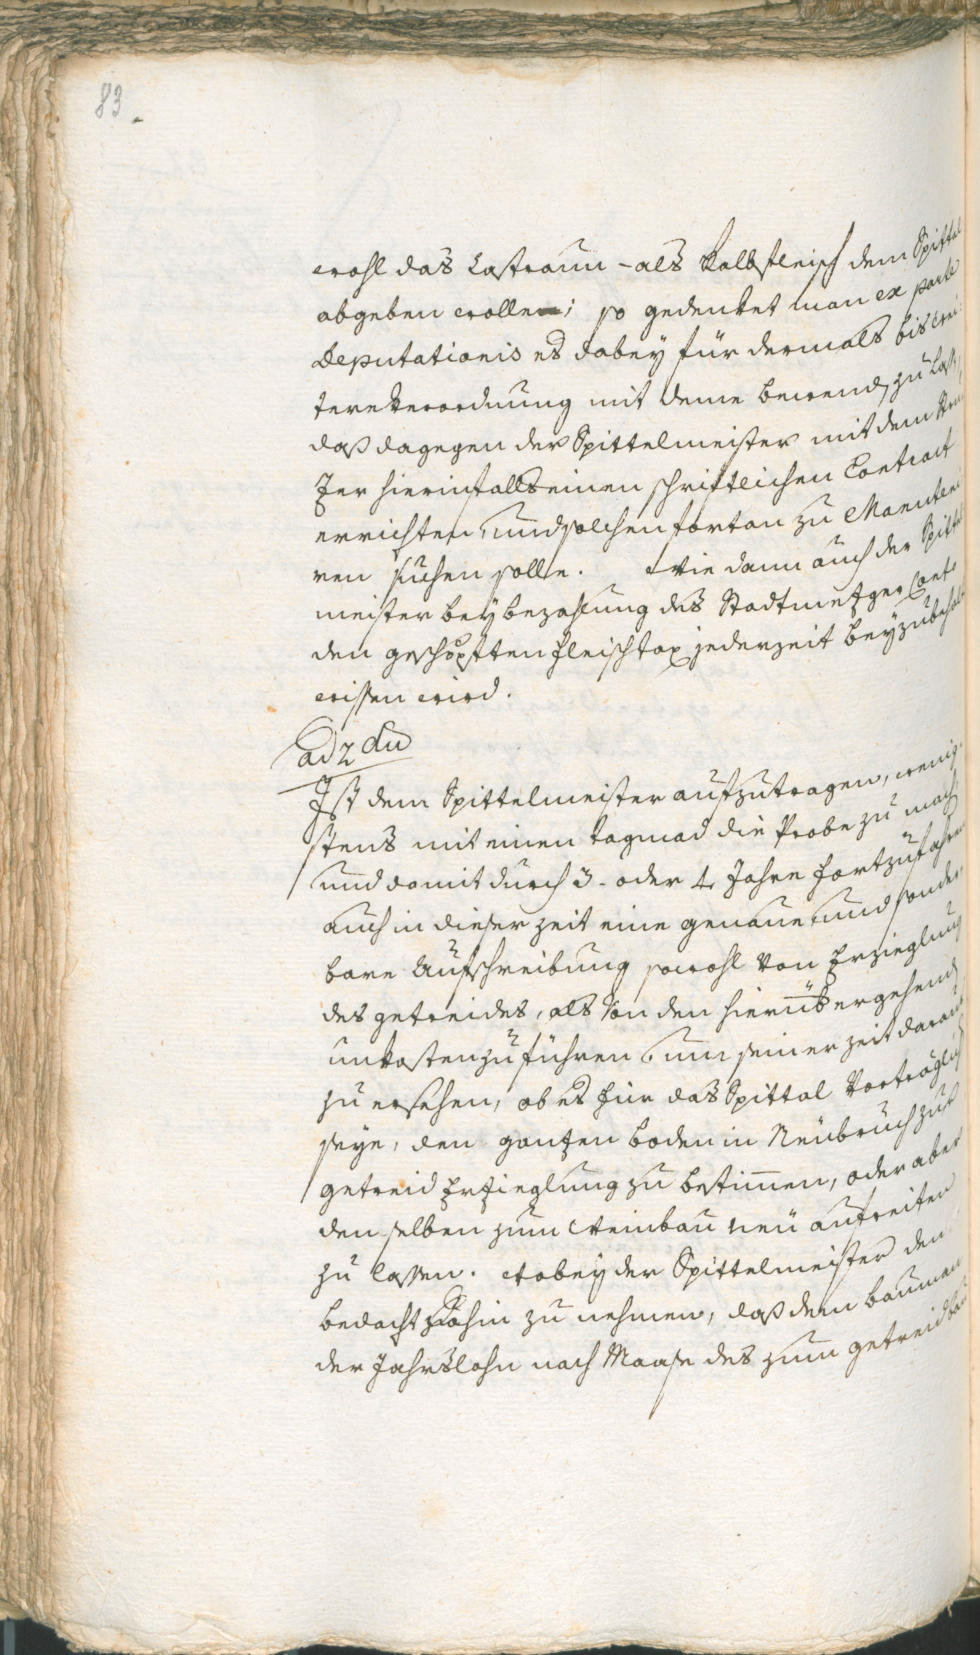 83.
wohl das Castraun- als Kalbfleisch dem Spittal
abgeben wolle; so gedenket man ex parte
Deputationis es dabey für dermals bis wei-
tere Verordnung mit deme bewend zu lass
daß dagegen der Spittelmeister mit dem
zer hierinfalls einen schriftlichen Contract
errichten, und solchen fortan zu Manuteni
ren suchen solle. Wie dann auch der Spittl
meister bey bezahlung des Stadtmetzger Conto
den geschöpften fleischtax jederzeit beyzubehalt
wissen wird.
ad 2dum
Ist dem Spittelmeister aufzutragen, wenig-
stens mit einen tagmad die Probe zu mach
und damit durch 3- oder 4 Jahre fortzufahren
auch in dieser zeit eine genaue und sonder-
bare Aufschreibung sowohl von Erzieglung
des getreides, als von den hierüber gehend
unkosten zu führen um seiner zeit daraus
zu ersehen, ob es für das Spittal Vorträglich
seye, den gantzen boden in Neübruch zur
getreid Erzieglung zu bestimen, oder aber
denselben zum Weinbau neü aufreiten
zu lassen. Wobey der Spittelmeister den
bedacht dahin zu nehmen, daß dem bauman
der Jahrslohn nach Maase des zum getreidbau